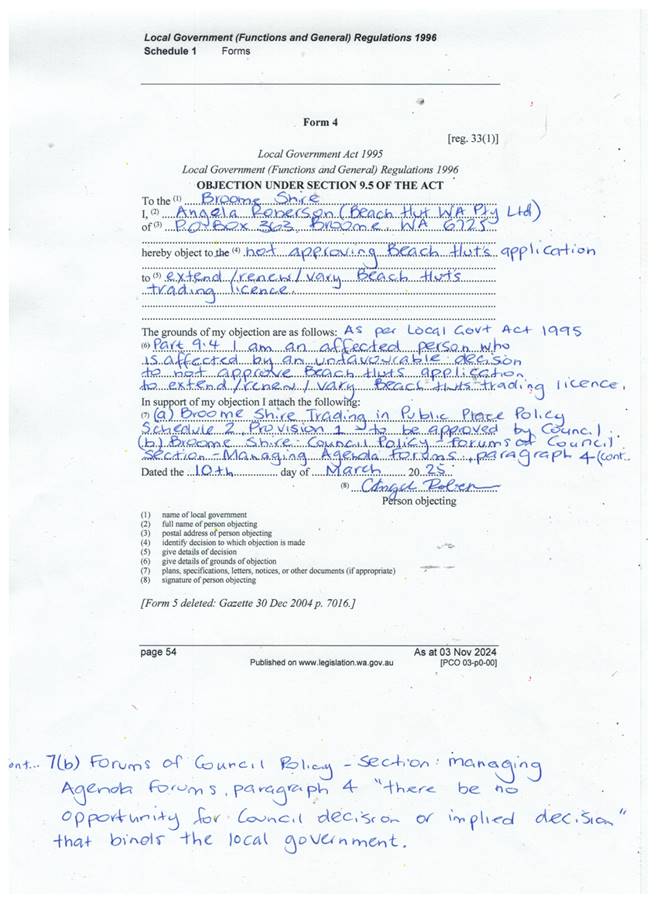 Local Government (Functions and General) Regulations 1996
Schedule 1 Forms
Form 4
[reg. 33(1)]
Local Government Act 1995
Local Government (Functions and General) Regulations 1996
OBJECTION UNDER SECTION 9.5 OF THE ACT
To the (1) Broome Shire
I, (2) Angela Roberson (Beach Hut WA Pty Ltd)
of (3) PO Box 363, Broome, WA 6725
hereby object to the (4) not approving Beach Hut's application
to (5) extend/renew/vary Beach Huts
trading licence.
The grounds of my objection are as follows: As per Local Govt Act 1995
(6) Part 9.4 I am an affected person who
is affected by an unfavourable decision
to not approve Beach Huts application
to extend/renew/vary Beach Huts trading licence.
In support of my objection I attach the following:
(7) (a) Broome Shire Trading in Public Place Policy
Schedule 2, Provision 1 - to be approved by Council.
(b) Broome Shire: Council Policy - Forums of Council
Section - Managing Agenda forums, paragraph 4 (cont..
Dated the 10th day of March 20 25
(8)
Person objecting
(1) name of local government
(2) full name of person objecting
(3) postal address of person objecting
(4) identify decision to which objection is made
(5) give details of decision
(6) give details of grounds of objection
(7) plans, specifications, letters, notices, or other documents (if appropriate)
(8) signature of person objecting
[Form 5 deleted: Gazette 30 Dec 2004 p. 7016.]
page 54 As at 03 Nov 2024
Published on www.legislation.wa.gov.au [PCO 03-p0-00]
ont... 7(b) Forums of Council Policy - Section: managing
Agenda Forums, paragraph 4 "there be no
opportunity for Council decision or implied decision"
that binds the local government.